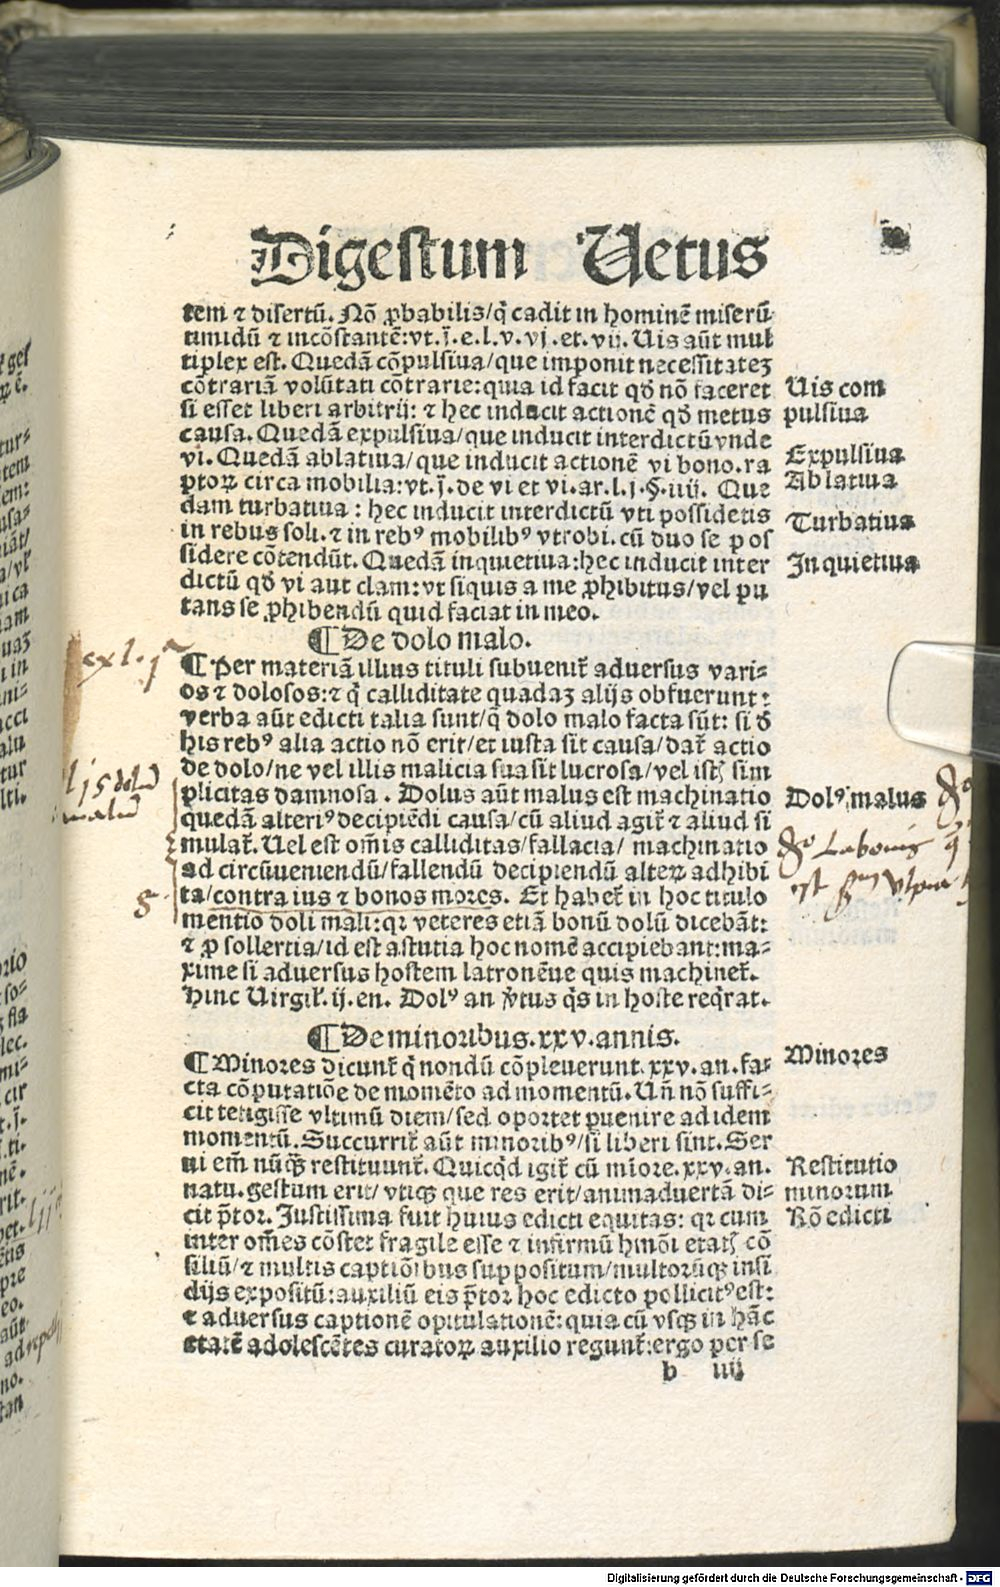 Digestum Uetus
tem ⁊ disertū. Nō ꝓbabilis/q̇ cadit in hominē miserū
timidū ⁊ incōstantē: vt. j̄. e. l. v. vj. et. vij. Uis aūt mul
tiplex est. Quedā cōpulsiua/que imponit necessitateꝫ
cōtrariā volūtati cōtrarie: quia id facit qḋ nō faceret
si esset liberi arbitrij: ⁊ hec inducit actionē qḋ metus
causa. Quedā expulsiua/que inducit interdictū vnde
vi. Quedā ablatiua/que inducit actionē vi bono. ra
ptoꝝ circa mobilia: vt. j̄. de vi et vi. ar. l. j. §. iiij. Que
dam turbatiua: hec inducit interdictū vti possidetis
in rebus soli. ⁊ in rebꝰ mobilibꝰ vtrobi. cū duo se pos
sidere cōtendūt. Quedā inquietiua: hec inducit inter
dictū qḋ vi aut clam: vt siquis a me ꝓhibitus/vel pu
tans se ꝓhibendū quid faciat in meo.
Uis com
pulsiua
Expulsiua
Ablatiua
Turbatiua
Inquietiua
¶ De dolo malo.
¶ Per materiā illius tituli subuenit̄ aduersus vari⸗
os ⁊ dolosos: ⁊ q̇ calliditate quadaꝫ alijs obfuerunt:
verba aūt edicti talia sunt/q̄ dolo malo facta sūt: si ḋ
his rebꝰ alia actio nō erit/et iusta sit causa/dat̄ actio
de dolo/ne vel illis malicia sua sit lucrosa/vel istꝭ sim
plicitas damnosa. Dolus aūt malus est machinatio
quedā alteriꝰ decipiēdi causa/cū aliud agit̄ ⁊ aliud si
mulat̄. Uel est om̄is calliditas/fallacia/ machinatio
ad circūueniendū/fallendū decipiendū alteꝝ adhibi
ta/contra ius ⁊ bonos mores. Et habet̄ in hoc titulo
mentio doli mali: qꝛ veteres etiā bonū dolū dicebāt:
⁊ ꝓ sollertia/id est astutia hoc nomē accipiebant: ma⸗
xime si aduersus hostem latronēue quis machinet̄.
Hinc Uirgil̄. ij. en. Dolꝰ an v̇tus q̇s in hoste reqrat.
Dolꝰ malus
¶ De minoribus. xxv. annis.
¶ Minores dicunt̄ q̇ nondū cōpleuerunt. xxv. an. fa⸗
cta cōputatiōe de momēto ad momentū. Uñ nō suffi⸗
cit tetigisse vltimū diem/sed oportet ꝑuenire ad idem
momentū. Succurrit̄ aūt minoribꝰ/si liberi sint. Ser
ui em̄ nūqꝫ̄ restituunt̄. Quicqd igit̄ cū mīore. xxv. an.
natu. gestum erit/ vtiqꝫ que res erit/animaduertā di⸗
cit p̄tor. Justissima fuit huius edicti equitas: qꝛ cum
inter om̄es cōstet fragile esse ⁊ infirmū hmōi etatꝭ cō
siliū/⁊ multis captiōibus suppositum/multorūqꝫ insi
dijs expositū: auxiliū eis p̄tor hoc edicto pollicitꝰ est:
⁊ aduersus captionē opitulationē: quia cū vsqꝫ in hāc
etatē adolescētes curatoꝝ auxilio regunt̄: ergo per se
Minores
Restitutio
minorum
Rō edicti
b iiij
Digitalisierung gefördert durch die Deutsche Forschungsgemeinschaft - DFG